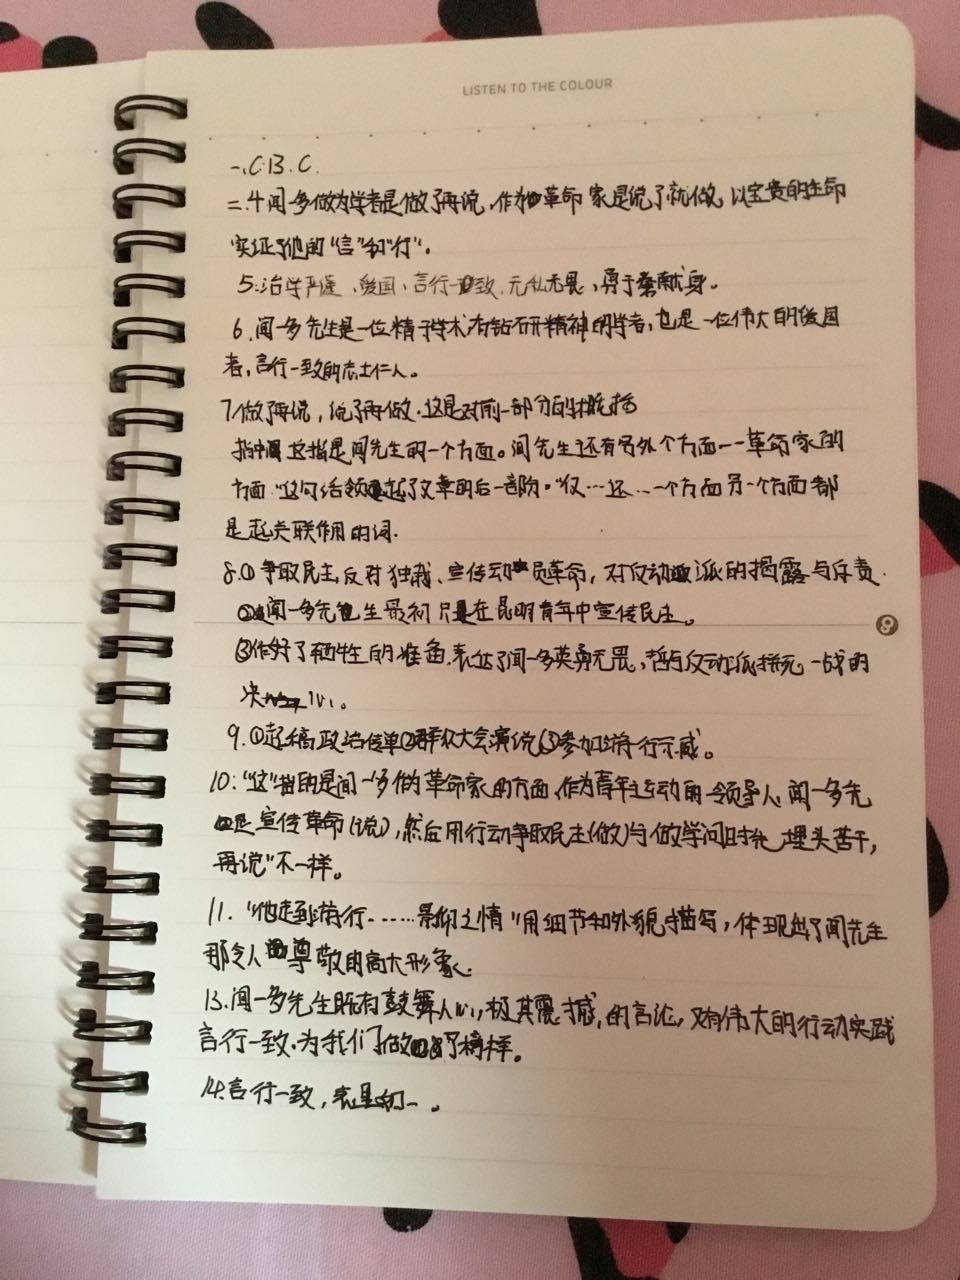 LISTEN TO THE COLOUR
一、C.B.C.
二.4闻一多做为学者是做了再说,作为革命家是说了就做,以宝贵的生命
实证了他的“言”和“行”。
5:治学严谨、爱国、言行一致,无私无畏,勇于献身。
6.闻一多先生是一位精于学术有钻研精神的学者,也是一位伟大的爱国
者,言行一致的志士仁人。
7.做了再说,说了再做.这是对前一部分的概括
这指是闻先生的一个方面。闻先生还有另外个方面——革命家的
方面.“这句话领起了文章的后一部分。“仅…还…一个方面另一个方面都
是起关联作用的词.
8.①争取民主,反对独裁、宣传动员革命,对反动派的揭露与斥责.
②闻一多先生最初只是在昆明青年中宣传民主。
③作好了牺牲的准备,表达了闻一多英勇无畏,誓与反动派拼死一战的
决心。
9.①起稿政治传单②群众大会演说③参加游行示威。
10:“这”指的是闻一多做革命家的方面,作为青年运动的领导人,闻一多先
是宣传革命(说),然后用行动争取民主(做)与做学问时先埋头苦干,
再说”不一样。
11.“他走到游行……景仰之情”用细节和外貌描写,体现出了闻先生
那令人尊敬的高大形象.
13.闻一多先生既有鼓舞人心,极其震撼,的言论,又有伟大的行动实践
言行一致.为我们做了榜样。
14.言行一致,表里如一。
9